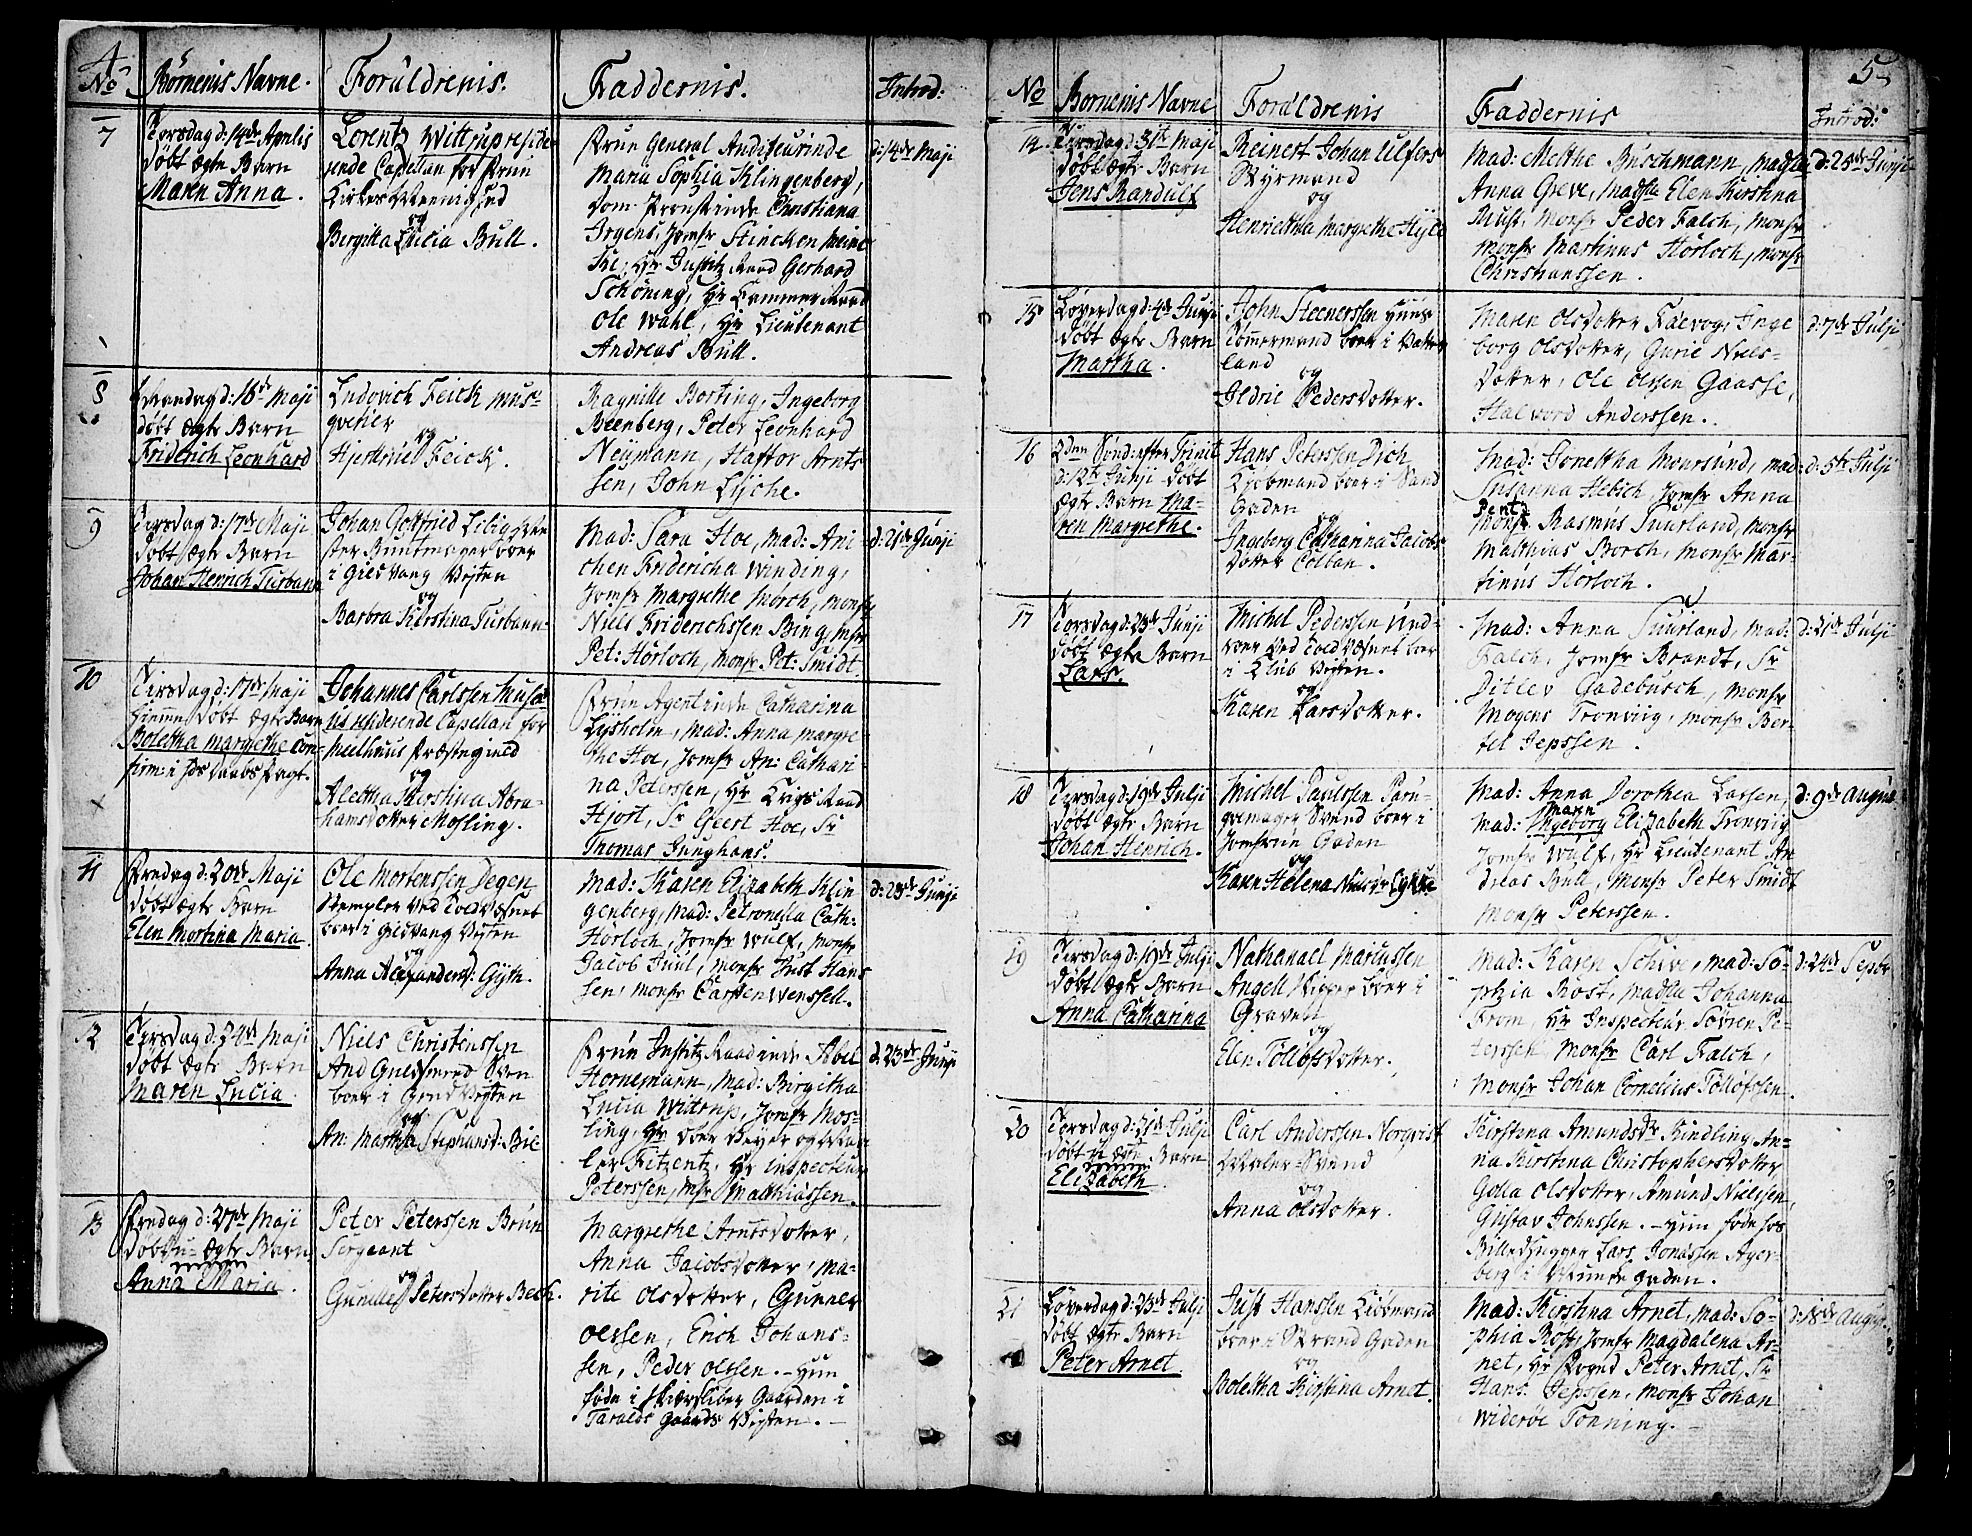 4
No
Börnenis Navne.
Forældrenis.
Faddernis.
Introd:
7
Torsdag d: 14de Aprilis
döbt ægte Barn
Maren Anna.
Lorentz Wittrup reside-
rende Capellan for Frue
Kirkes Meenighed
og
Bergitta Cecilia Bull.
Frue General Auditeurinde
Maria Sophia Klingenberg,
Dom Proustinde Christiana
Irgens, Jomfr Stincken Meine
ke, Hr Justitz Raad Gerhard
Schöning, Hr Cammer Raad
Ole Wahl, Hr Lieutenant
Andreas Bull.
d: 14de Maji
8
Mandag d: 16de Maji
döbt ægte Barn
Friderich Leonhard
Ludovich Feick Mus-
qvetier
og
Feick.
Ragnille Borting, Ingeborg
Beenberg, Peter Leonhard
Neÿmann, Haftor Arnts
sen, John Lyche.
9
Tirsdag d: 17de Maji
döbt ægte Barn
Johan Henrich Turbann
Johan Gottfried Lilig
Buntmager boer
i Gieldvang Veÿten
og
Barbra Kirstina Turbann
Mad: Sara Hoe, Mad: Ani-
chen Fridericha Winding,
Jomfr Margrethe Morch, Monsr
Niels Friderichssen Bing, Msr
Pet: Hörloch, Monsr Pet: Smidt.
d: 21de Junji
10
Tirsdag d: 17de Maji
hiemmedöbt ægte Barn
Boletha Margrethe con-
firm: i
Johannes Carlssen Musæ
us residerende Capellan for
Meelhuus Præstegield
og
Alettha Kirstina Abra-
hamsdotter Mosling.
Frue Agentinde Catharina
Lysholm, Mad: Anna Margre
the Hoe, Jomfr An: Cathari-
na Peterssen, Hr Krigs Raad
Hjort, Sr Geert Hoe, Sr
Thomas Junghans.
11
Fredag d: 20de Maji
döbt ægte Barn
Elen Mortina Maria
Ole Mortenssen Degen
Stempler ved Toldvæsnet
boer i Gieldvang Veÿten
og
Anna Alexandersd: Gÿth.
Mad: Karen Elizabeth Klin
genberg, Mad: Petronella Cath:
Hörloch, Jomfr Wulf, Monsr
Jacob Juul, Monsr Just Hans
sen, Monsr Carsten Wenssell.
d: 28de Junji
12
Tirsdag d: 24de Maji
döbt ægte Barn
Maren Lucia.
Niels Christenssen
And Sven
boer i Veÿten
og
An: Martha Stephansd: Bie
Frue Justitz Raadinde Abel
Hornemann, Mad: Birgitha
Lucia Wittrup, Jomfr Mos-
ling, Hr Over Veyer og Maa-
ler Fitzentz, Hr Inspecteur
Peterssen, Msr Matthiassen.
d: 23de Junji
13
Fredag d: 27de Maji
döbt u-ægte Barn
Anna Maria.
Peter Peterssen Brun
Sergeant
og
Gunille Petersdotter Bech.
Margrethe Arntsdotter,
Anna Jacobsdotter, Ma-
rite Olsdotter, Gunner
Olssen, Erich Johans-
sen, Peder Olssen. Hun
föde i Skiærsliber Gaarden i
Taralds Gaards Veÿten.
5
No
Börnenis Navne
Forældrenis
Faddernis
Introd:
14
Tirsdag d: 31te Maji
döbt ægte Barn
Jens Randulf
Reinert Johan Ulfers
Styrmand
og
Henrietha Margrethe Hÿld
Mad: Mette Buschmann, Madslle
Anna Greve, Madslle Elen Kirstina
Must, Monsr Peder Falch, Monsr
Monsr Martinus Hörloch, Monsr
Christianssen.
d: 25de Junji
15
Löverdag d: 4de Junji
döbt ægte Barn
Martha.
John Steenerssen Huus
Tömermand boer i Vatter
land
og
Ildrie Pedersdotter.
Maren Olsdotter Faevog, Inge
borg Olsdotter, Gurie Niels-
dotter, Ole Olssen Gaasse,
Halvord Anderssen.
d: 7de Julji
16
2den Sönd: efter Trinit
d: 12te Junji döbt
ægte Barn Ma-
ren Margrethe.
Hans Peterssen Dich
Kiöbmand boer i Sand
Gaden
og
Ingeborg Catharina Jacobs
dotter Colban.
Mad: Jonettha Moursund, Mad:
Susanna Hebich, Jomfr Anna
Pentz
Monsr Rasmus Suurland, Monsr
Matthias Borch, Monsr Mar-
tinus Hörloch.
d: 5te Julji
17
Torsdag d: 23de Junji
döbt ægte Barn
Lars.
Michel Pederssen Und-
boer ved Toldvæsnet boer
i Klub Veÿten.
og
Karen Larsdotter.
Mad: Anna Suurland, Mad:
Falch, Jomfr Brandt, Sr
Ditlev Gadebusch, Monsr
Mogens Tronviig, Monsr Ber-
tel Jepssen.
d: 21de Julji
18
Tirsdag d: 19de Julji
döbt ægte Barn
Johan Henrich.
Michel Paulssen Paru-
qvemager Svend boer i
Jomfrue Gaden
og
Karen Helena Nielsdr Lykke
Mad: Anna Dorothea Lassen,
Maren
Mad: Ingeborg Elizabeth Tronviig
Jomfr Wulf, Hr Lieutenant An
dreas Bull, Monsr Peter Smidt
Monsr Peterssen.
d: 9de August
19
Tirsdag d: 19de Julji
döbt ægte Barn
Anna Catharina
Nathanael Marcussen
Angell Skipper boer i
Graven
og
Elen Tollofsdotter.
Mad: Karen Schive, Mad: So-
phia Rost, Madslle Johanna
From, Hr Inspecteur Sören Pe-
terssen, Monsr Carl Falch,
Monsr Johan Cornelius Töllofssen.
d: 24de Septbr
20
Torsdag d: 21de Julji
döbt u ægte Barn
Elizabeth
Carl Anderssen Norqvist
Maler-Svend
og
Anna Olsdotter.
Kirstina Amundsdr Kindling, An-
na Kirstina Christophersdotter
Golla Olsdotter, Amund Nielssen,
Gustav Johnssen. - Hun föde hos
Billedhugger Lars Jonassen Ager-
berg i Munke gaden.
21
Löverdag d: 23de Julji
döbt ægte Barn
Peter Arnet.
Just Hanssen Kiöbmand
boer i Strand Gaden
og
Boletha Kirstina Arnet
Mad: Kirstina Arnet, Mad: So-
phia Röst, Jomfr Magdalena Ar-
net, Hr Fogd Peter Arnet, Sr
Hans Jepssen, Monsr Johan
Wideröe Tonning.
d: 18de August.